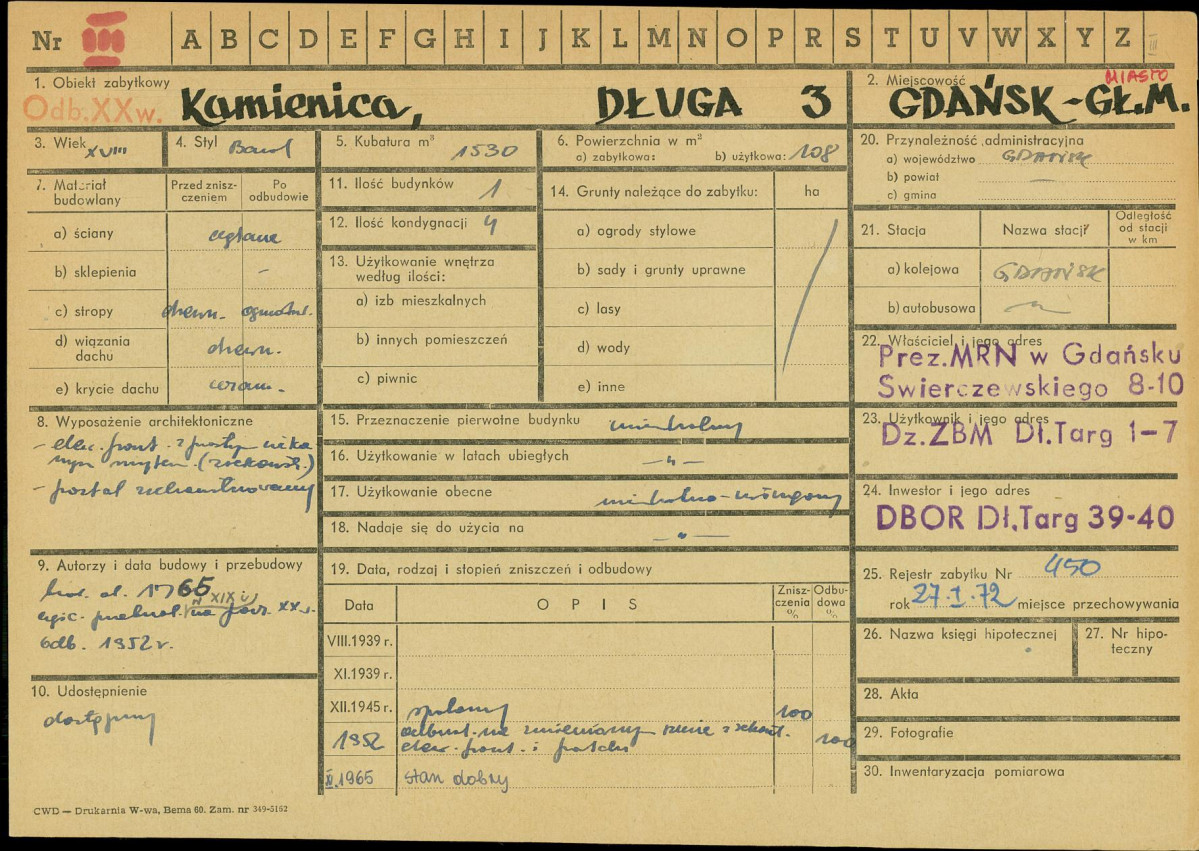 Nr III A B C D E F G H I J K L M N O P R S T U V W X Y Z
1. Obiekt zabytkowy
Odb.XXw. Kamienica, DŁUGA 3
2. Miejscowość MIASTO
GDAŃSK-GŁ.M.
3. Wiek XVIII
4. Styl
5. Kubatura m³ 1530
6. Powierzchnia w m²
a) zabytkowa: b) użytkowa: 108
20. Przynależność administracyjna
a) województwo GDAŃSK
b) powiat —
c) gmina
7. Materiał budowlany
Przed zniszczeniem
Po odbudowie
a) ściany ceglane
b) sklepienia -
c) stropy drewn. ogniotrw.
d) wiązania dachu drewn.
e) krycie dachu ceram.
11. Ilość budynków 1
12. Ilość kondygnacji 4
13. Użytkowanie wnętrza
według ilości:
a) izb mieszkalnych
b) innych pomieszczeń
c) piwnic
14. Grunty należące do zabytku: ha
a) ogrody stylowe
b) sady i grunty uprawne
c) lasy
d) wody
e) inne
21. Stacja Nazwa stacji Odległość od stacji w km
a) kolejowa GDAŃSK
b) autobusowa
22. Właściciel i jego adres
Prez.MRN w Gdańsku
Swierczewskiego 8-10
23. Użytkownik i jego adres
Dz.ZBM Dł.Targ 1-7
24. Inwestor i jego adres
DBOR Dł.Targ 39-40
8. Wyposażenie architektoniczne
- elew. front.
- portal zrekonstruowany
15. Przeznaczenie pierwotne budynku mieszkalny
16. Użytkowanie w latach ubiegłych -"-
17. Użytkowanie obecne mieszkalno-usługowy
18. Nadaje się do użycia na -"-
9. Autorzy i data budowy i przebudowy
1765
XIX w.
XX w.
odb. 1952 r.
19. Data, rodzaj i stopień zniszczeń i odbudowy
Data OPIS Zniszczenia % Odbudowa %
VIII.1939 r.
XI.1939 r.
XII.1945 r. spalony 100
1952 odbud. na zmieniony 100
elew. front. i portalu
XI.1965 stan dobry
10. Udostępnienie
dostępny
25. Rejestr zabytku Nr 450
rok 27.I.72 miejsce przechowywania
26. Nazwa księgi hipotecznej
27. Nr hipoteczny
28. Akta
29. Fotografie
30. Inwentaryzacja pomiarowa
CWD — Drukarnia W-wa, Bema 60. Zam. nr 349-5162